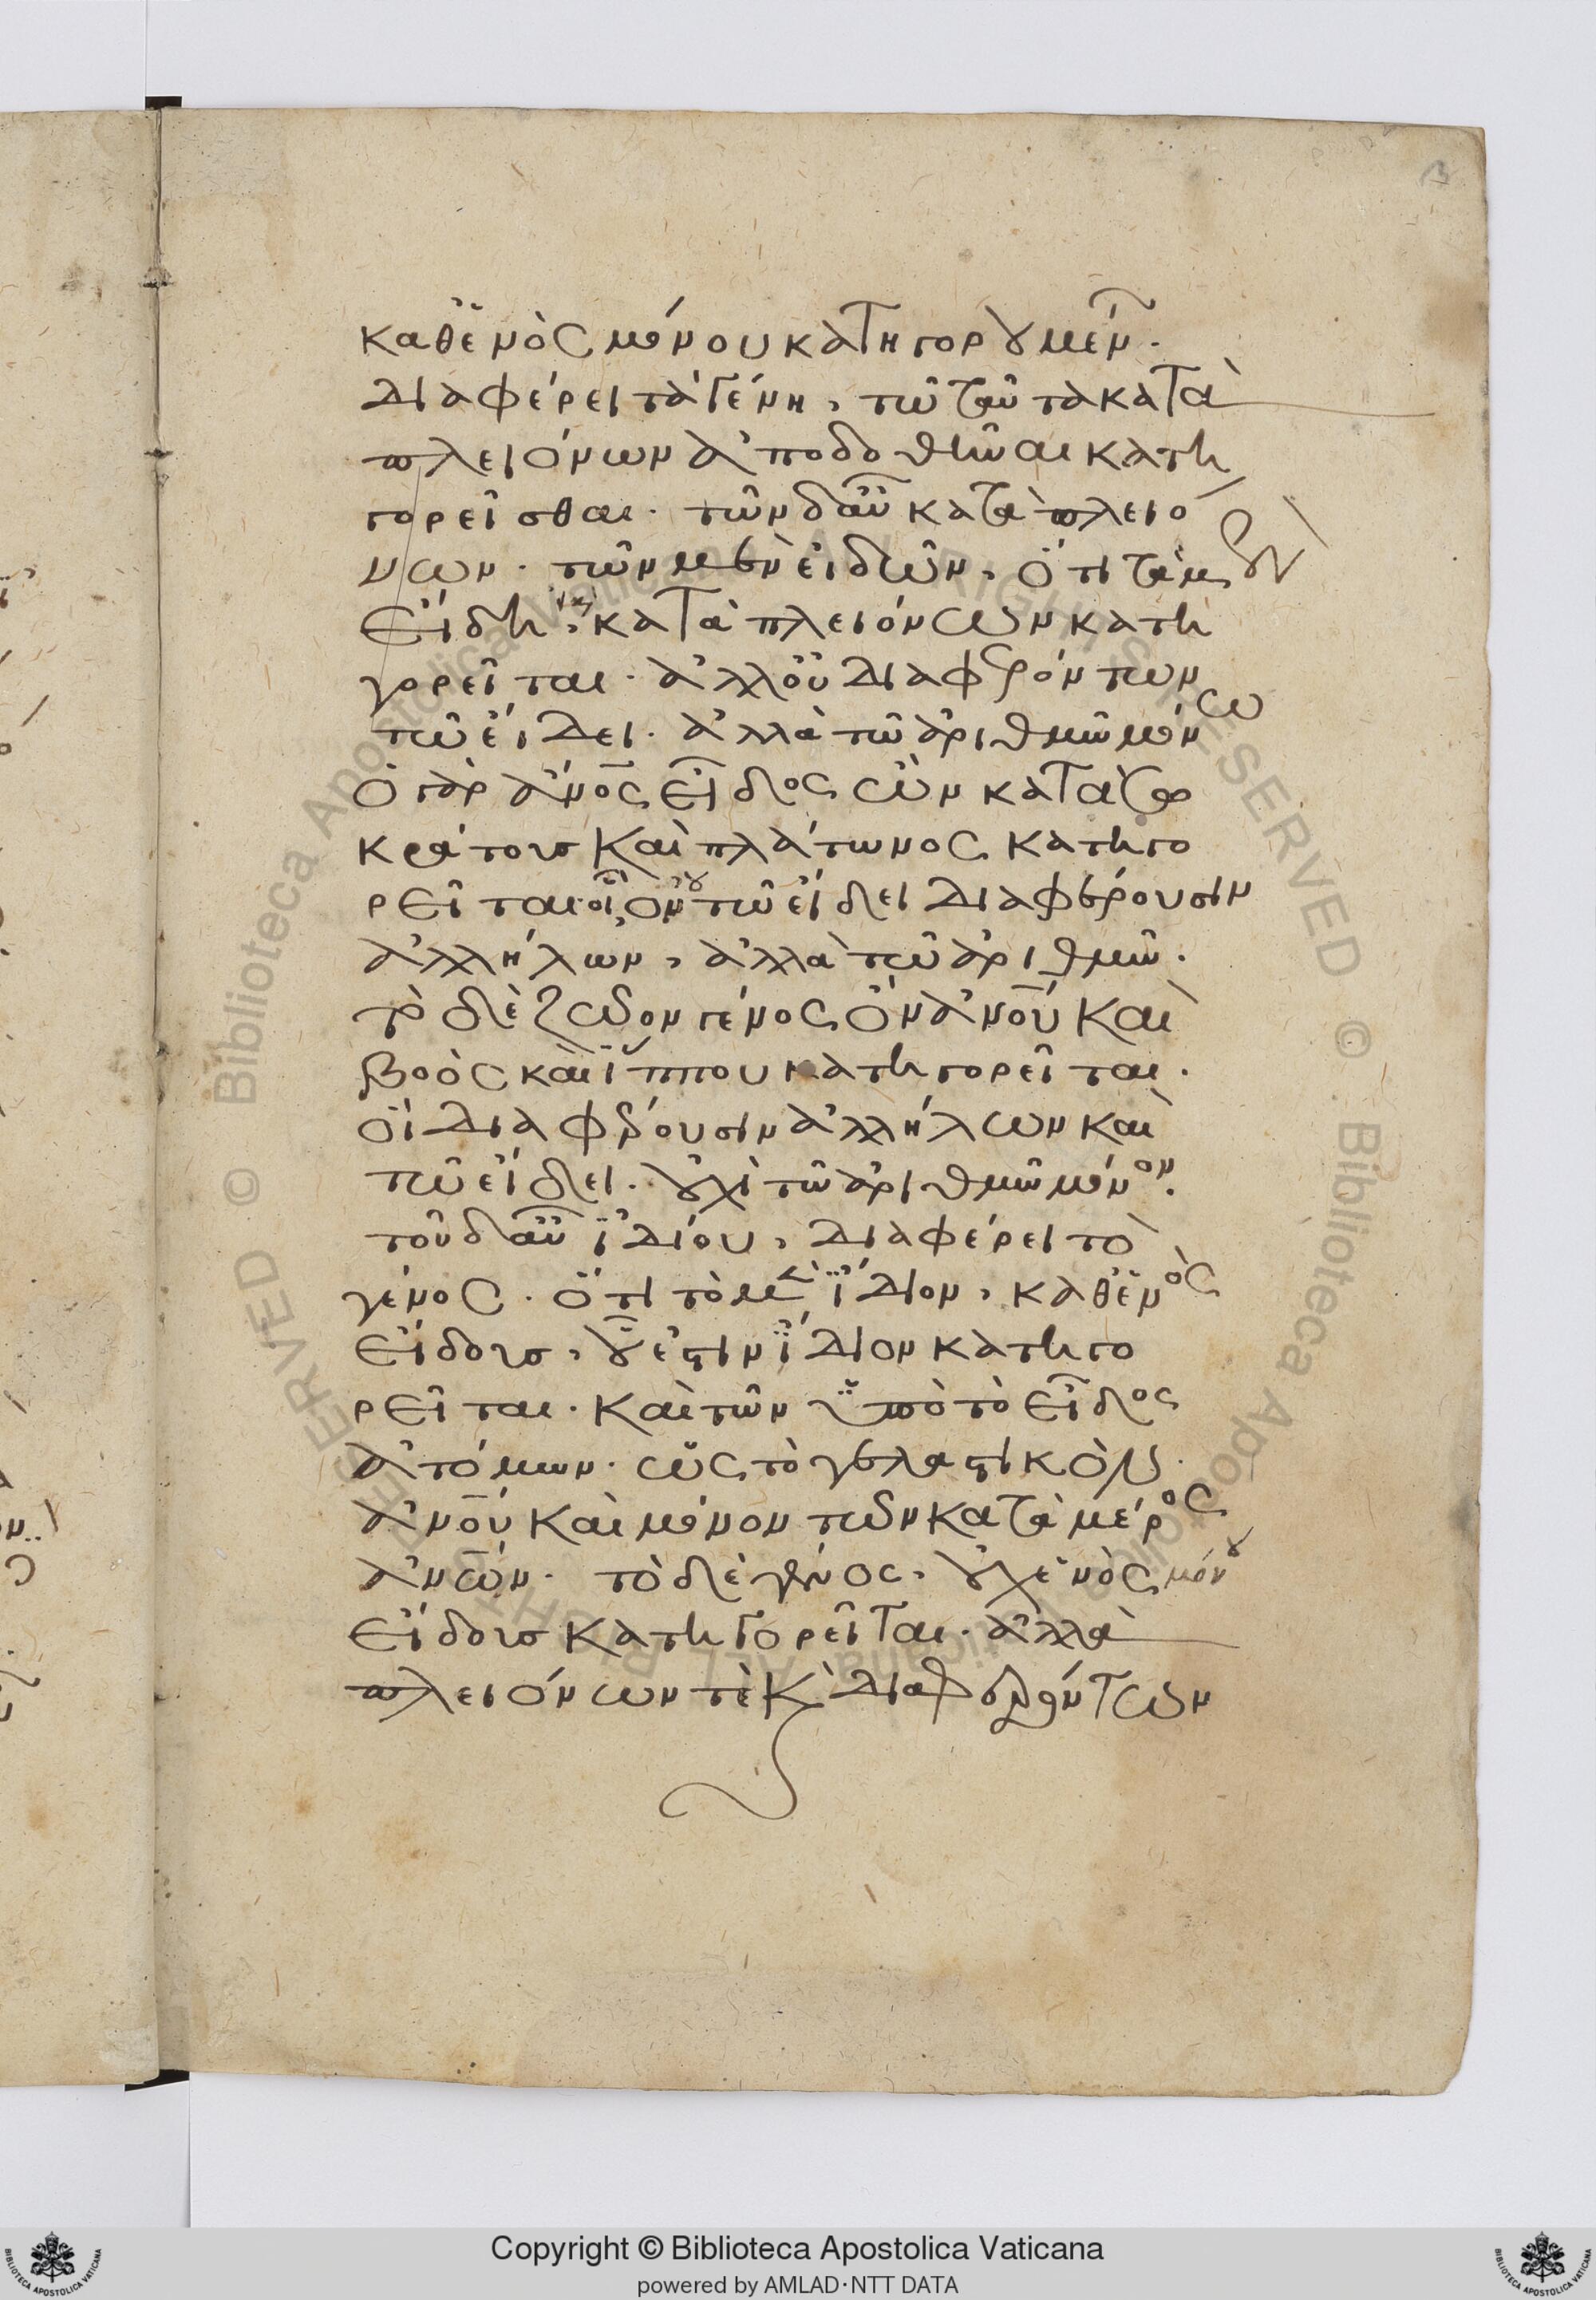 καθἑνὸς μόνου κατηγορουμέν.
διαφέρει τὰ γένη, τῶ ταῦτα κατὰ
πλειόνων ἀποδοθῆναι κατη
γορεῖσθαι. τῶν δ' αὖ κατὰ πλειό
νων. τῶν μὲν εἰδῶν, ὅτι τὰ μὲν
εἴδη, κατὰ πλειόνων κατη
γορεῖται. ἀλλ' οὐ διαφερόντων
τῶ εἴδει. ἀλλὰ τῶ ἀριθμῶ μόνω
ὁ γὰρ ἄνος εἶδος ὢν κατὰ σω
κράτους καὶ πλάτωνος κατηγο
ρεῖται· οἳ οὐ τῶ εἴδει διαφέρουσιν
ἀλλήλων, ἀλλὰ τῶ ἀριθμῶ.
τὸ δὲ ζῶον γένος ὂν ἀνου καὶ
βοὸς καὶ ἵππου κατηγορεῖται.
οἳ διαφέρουσιν ἀλλήλων καὶ
τῶ εἴδει. οὐχὶ τῶ ἀριθμῶ μόνον.
τοῦ δ' αὖ ἰδίου, διαφέρει τὸ
γένος. ὅτι τὸ μὲν ἴδιον, καθἑνὸς
εἴδους, οὗ ἐστιν ἴδιον κατηγο
ρεῖται. καὶ τῶν ὑπὸ τὸ εἶδος
ἀτόμων. ὡς τὸ γελαστικὸν.
ἀνου καὶ μόνον τῶν κατὰ μέρος
ἀνων. τὸ δὲ γένος, οὐχ ἑνὸς μόνου
εἴδους κατηγορεῖται. ἀλλὰ
πλειόνων τὲ κ διαφερόντων